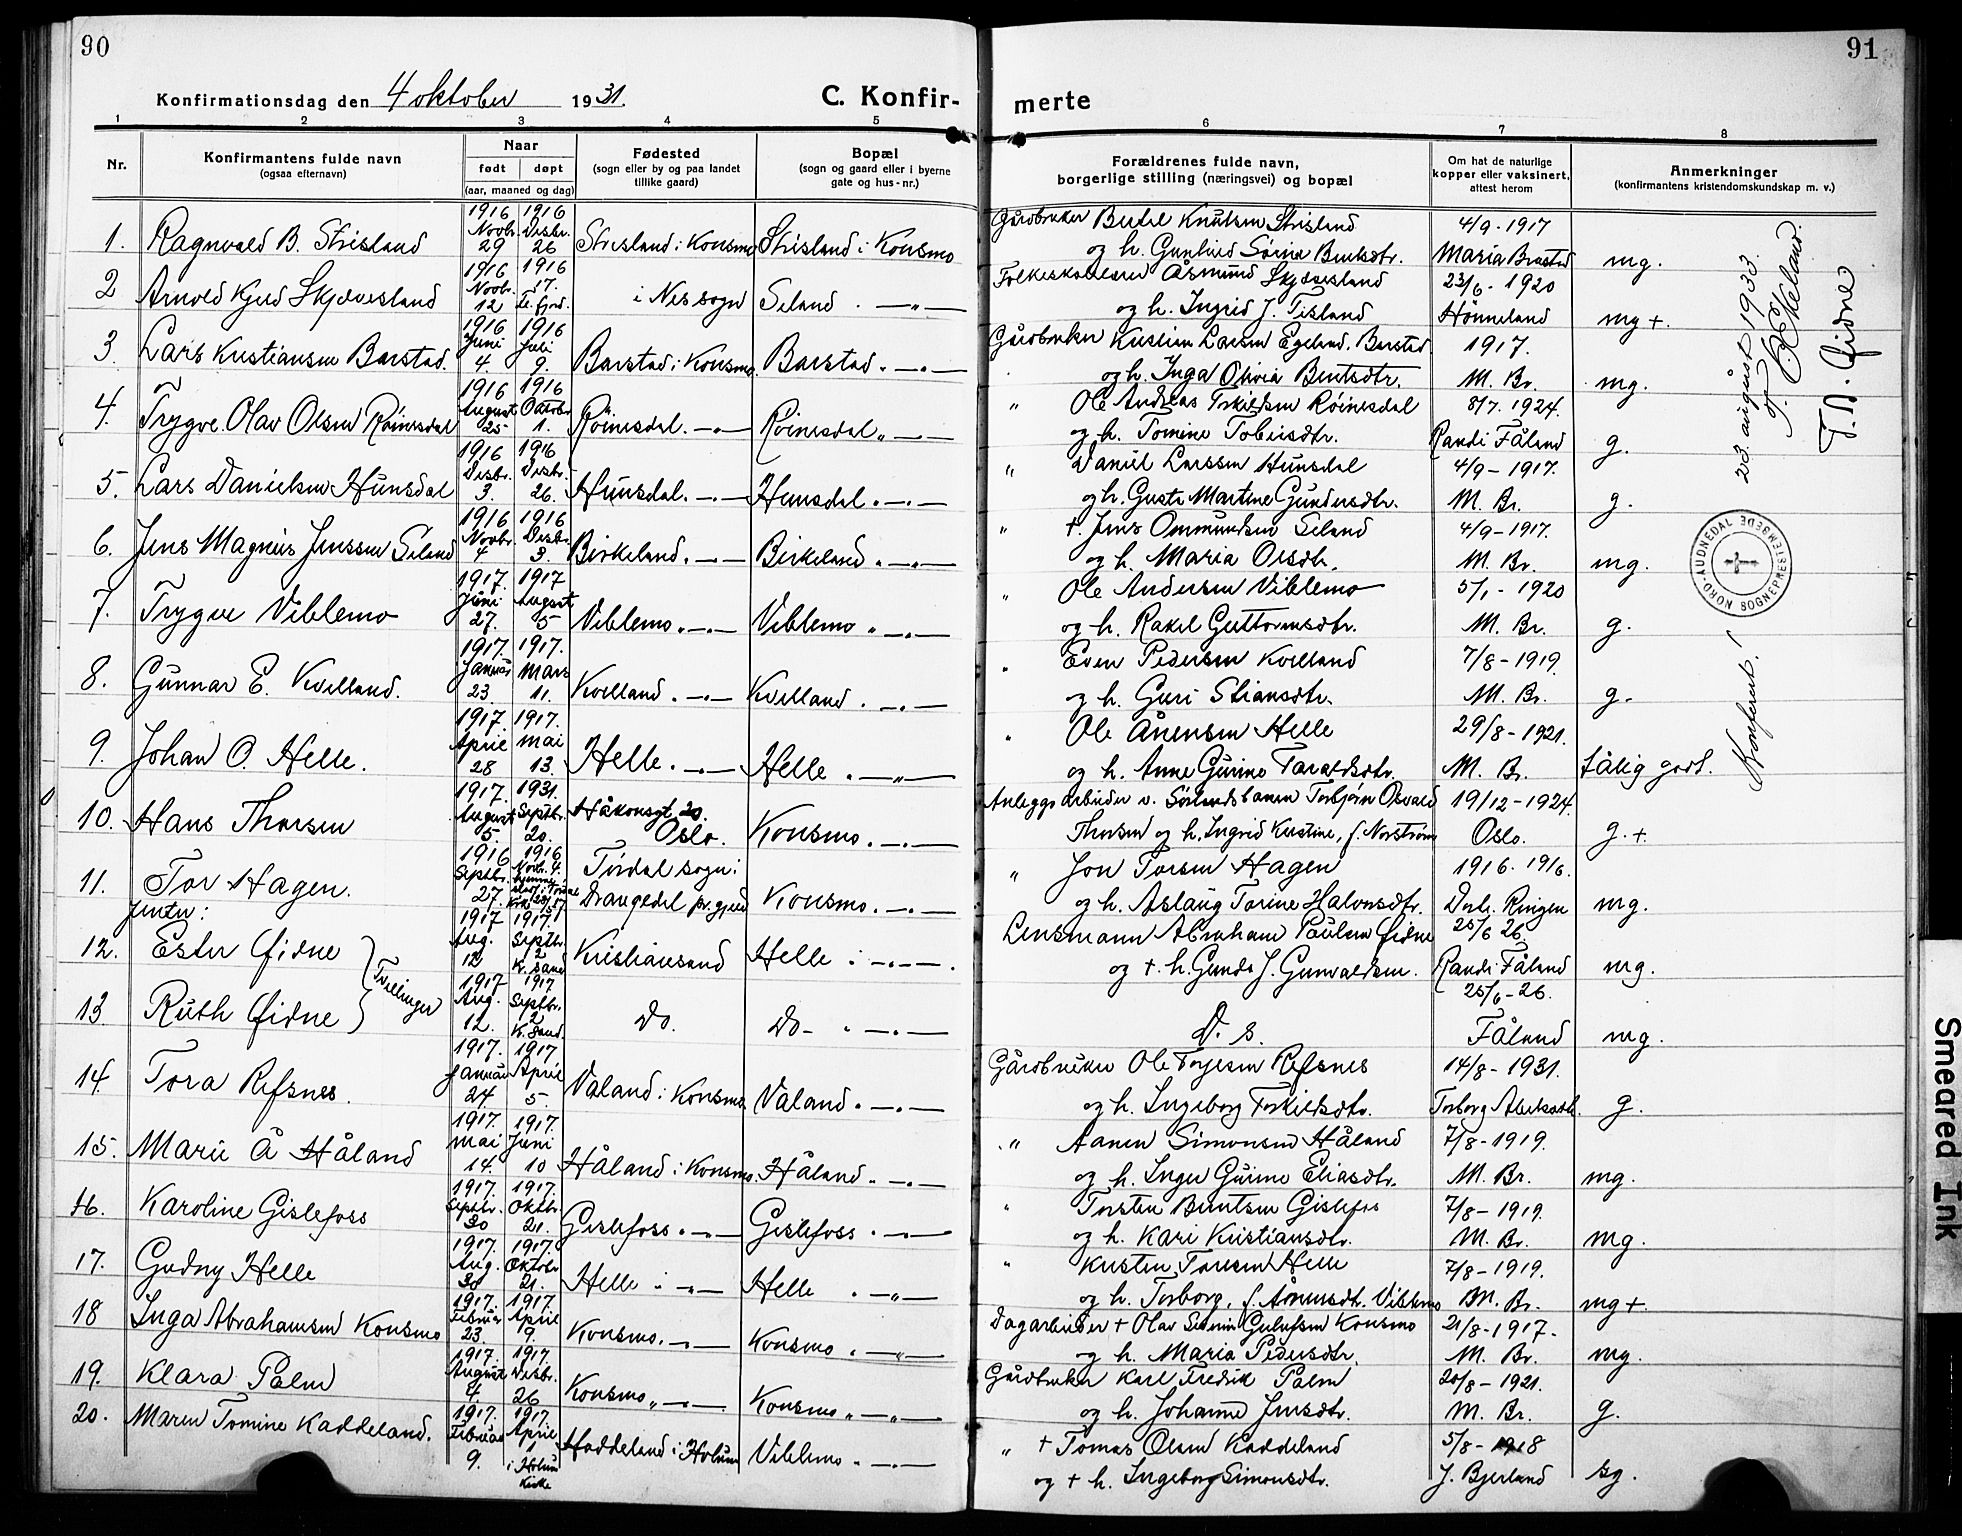 90
Konfirmationsdag den 4 oktober 1931.
C. Konfir-
1 2 3 4 5
Nr.
Konfirmantens fulde navn
(ogsaa efternavn)
Naar
født døpt
(aar, maaned og dag)
Fødested
(sogn eller by og paa landet
tillike gaard)
Bopæl
(sogn og gaard eller i byerne
gate og hus-nr.)
1. Ragnvald B. Strisland 1916 Novbr. 29 1916 Desbr. 26 Strisland i Konsmo Strisland i Konsmo
2 Arnold Kjed Skjævesland 1916 Novbr. 12 1916 17. i Nes sogn Seland . —„—
3. Lars Kristiansen Barstad. 1916 Juni 4 1916 Juli 9. Barstad i Konsmo. Barstad . —.—
4. Trygve Olav Olsen Røinesdal 1916 August 25 1916 Oktobr 1. Røinesdal. —„— Røinesdal„ —.—
5. Lars Danielsen Hunsdal 1916 Desbr. 3. 1916 Desbr. 26. Hunsdal. —.— Hunsdal. —.—
6. Jens Magnus Jenssen Seland 1916 Novbr. 4 1916 Desbr. 3. Birkeland. —.— Birkeland . —.—
7. Trygve Viblemo 1917 Juni 27. 1917 August 5 Viblemo . —.— Viblemo „ —.—
8. Gunnar E. Kvelland. 1917. Januar 23. 1917. Mars 11. Kvelland . —.— Kvelland . —.—
9. Johan O. Helle. 1917. April 28 1917. mai 13. Helle. —.— Helle . —„—
10. Hans Thorsen 1917. August 5. 1931. Septbr. 20. Håkonsgt. 20. Oslo. Konsmo. —.—
11. Tor Hagen. 1916 Septbr. 27. 1916 Novbr. 4. Tørdal sogn i Drangedal pr.gjeld Konsmo. —.—
Jenter:
12. Ester Øidne 1917 Aug. 12 1917. Septbr. 2 K. sand Kristiansand Helle . —.—
13. Ruth Øidne 1917 Aug. 12. 1917 Septbr. 2 K. sand. Do. Do- „ —.—
Tvillinger
14. Tora Refsnes. 1917. Januar 24 1917 April 5 Valand i Konsmo. Valand . —.—
15. Marie Å Håland 1917. mai 14. 1917. Juni 10 Håland i Konsmo. Håland . —.—
16. Karoline Gislefoss 1917. Septbr. 30 1917. Oktbr. 21. Gislefoss . —.— Gislefoss . —.—
17. Gudny Helle 1917. Aug. 30 1917. Oktobr 21. Helle . —„— Helle . —„—
18 Inga Abrahamsen Konsmo 1917. Februar 23. 1917. April 9. Konsmo. —.— Konsmo . —„—
19. Klara Palm 1917. August 4. 1917 Desbr. 26 Konsmo„ —.— Konsmo„ —„—
20. Maren Tomine Kaddeland. 1917. Februar 9. 1917 April 1 i Holum Kirke Haddeland i Holum Viblemo . —.—
91
merte
6 7 8
Forældrenes fulde navn,
borgerlige stilling (næringsvei) og bopæl
Om hat de naturlige
kopper eller vaksinert,
attest herom
Anmerkninger
(konfirmantens kristendomskundskap m. v.)
Gårdbruker Bertel Knutsen Strisland 4/9 - 1917
og h. Gunhild Sørine Bentsdtr. Maria Brastad mg.
Folkeskolelærer Åsmund Skjævesland 23/6 - 1920
og h. Ingrid J. Tisland Hønneland mg +.
Gårdbruker Kristian Larsen Egeland, Barstad 1917.
og h. Inga Olivia Bentsdtr. M. Br. mg.
„ Ole Andreas Terkildsen Røinesdal 8/7. 1924.
og h. Tomine Tobiasdtr. Randi Fåland g.
„ Daniel Larssen Hunsdal 4/9 - 1917.
og h. Gusta Martine Gundersdtr. M. Br. g.
„ + Jens Ommundsen Seland 4/9 - 1917.
og h. Maria Olsdtr. M. Br. mg.
„ Ole Andersen Viblemo 5/1 - 1920
og h. Rakel Guttormsdtr. M. Br. g.
„ Even Pedersen Kvelland 7/8 - 1919.
og h. Guri Stiansdtr. M. Br. g.
„ Ole Ånensen Helle 29/8 - 1921.
og h. Anne Gurine Taraldsdtr. M. Br. tålig godt.
Anleggsarbeider v. Sørlandsbanen Torbjørn Osvald 19/12 - 1924.
Thorsen og h. Ingrid Kristine, f. Norstrøm Oslo. g. +
„ Jon Torsen Hagen 1916. 1916.
og h. Aslaug Torine Halvorsdtr. Distr. Ringen mg.
Lensmann Abraham Paulsen Øidne 25/6 26
og +. h. Gunda J. Gunvaldsen. Randi Fåland mg.
25/6 - 26.
D. s. Fåland mg.
Gårdbruker Ole Terjesen Refsnes 14/8 - 1931.
og h. Ingeborg Torkildsdtr. Torborg Abelsdtr. g.
„ Aanen Simonsen Håland 7/8 - 1919.
og h. Inger Gurine Eliasdtr. M. Br. mg.
„ Torsten Berntsen Gislefos 7/8 - 1919.
og h. Kari Kristiansdtr. M. Br. mg.
„ Kristen Tomesen Helle 7/8 - 1919.
og h. Torborg, f. Ånensdtr. Viblemo M. Br. mg +.
Dagarbeider + Olav Severin Gulufsen Konsmo 21/8 - 1917.
og h. Maria Pedersdtr. M. Br. mg.
Gårdbruker Karl Fredrik Palm 20/8 - 1921.
og h. Johanne Jensdtr. M. Br. g.
„ + Tomas Olsen Kaddeland 5/8 - 1918
og + h. Ingeborg Simonsdtr. J. Bjerland sg.
Konferert.
23. august 1933.
T. A. Øidne
NORD-AUDNEDAL SOGNEPRESTEMBEDE
Smeared Ink